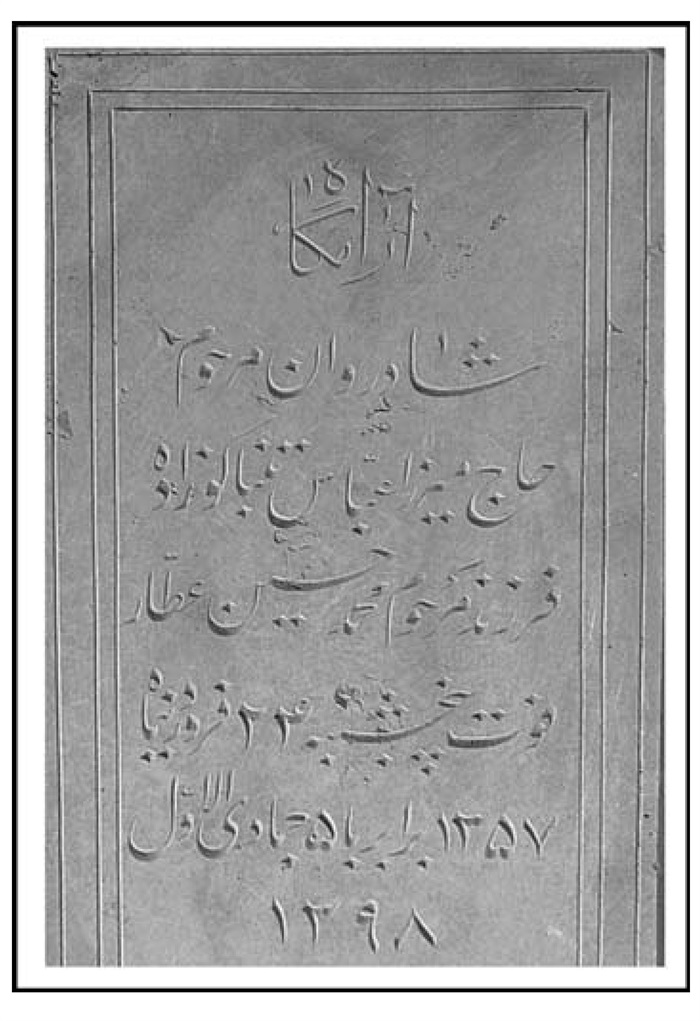 آرامگاه
شادروان مرحوم
حاج میرزا عباس تنباکوزاده
فرزند مرحوم محمد حسین عطار
فوت پنجشنبه ۲۴ فروردینماه
۱۳۵۷ برابر با ۵ جمادی الاول
۱۳۹۸